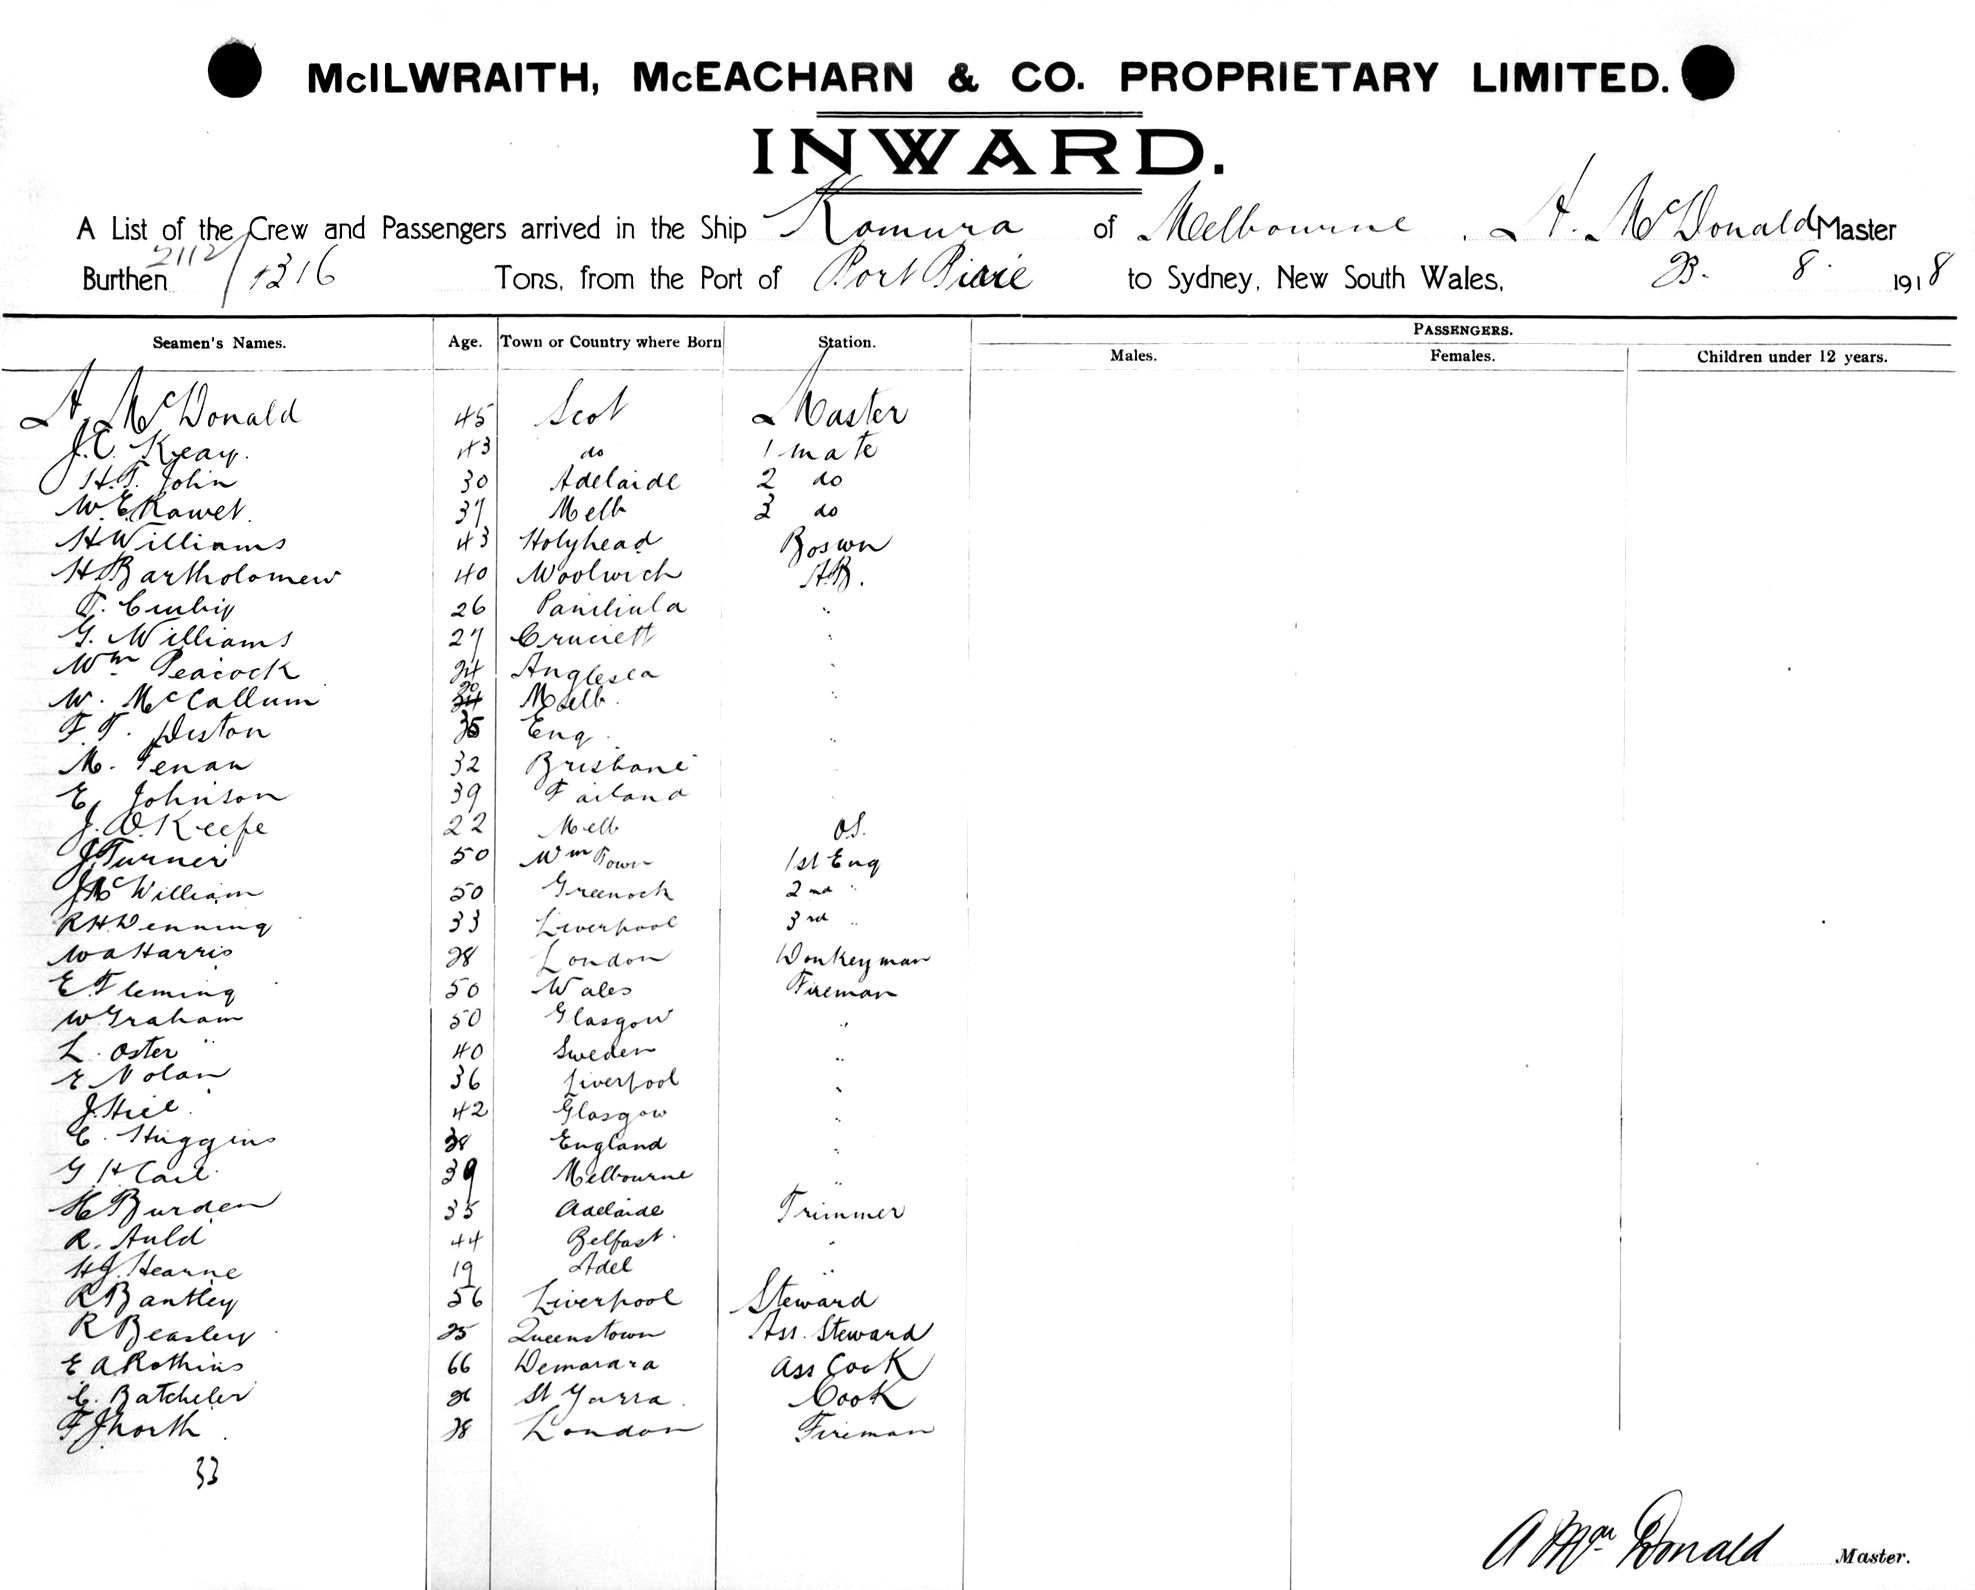 McILWRAITH, McEACHARN & CO. PROPRIETARY LIMITED.
INWARD.
A List of the Crew and Passengers arrived in the Ship Komura of Melbourne. A. McDonald Master
Burthen 2112/1316 Tons, from the Port of Port Pirie to Sydney, New South Wales, 23. 8. 1918
Seamen's Names. Age. Town or Country where Born Station. PASSENGERS.
Males. Females. Children under 12 years.
A. McDonald 45 Scot Master
J.C. Keay. 43 do 1 mate
H.T. John 30 Adelaide 2 do
W.E. 37 Melb 3 do
H Williams 43 Holyhead Boswn
H Bartholomew 40 Woolwich A.B.
T. 26 "
G. Williams 27 "
Wm Peacock 24 Anglesea "
W. McCallum 20 Melb. "
F. T. Diston 35 Eng. "
M. 32 Brisbane "
E, Johnson 39 "
J. O. Keefe 22 Melb O.S.
J. Turner 50 Wm Town 1st Eng
J McWilliam 50 Greenock 2nd "
R H Denning 33 Liverpool 3rd "
W a Harris 28 London Donkeyman
E. Fleming 50 Wales Fireman
W Graham 50 Glasgow "
L. Oster 40 Sweden "
E Nolan 36 Liverpool "
J. Hill. 42 Glasgow "
C. Huggins 38 England "
G H Cail 39 Melbourne "
H Burden 35 Adelaide Trimmer
R. Auld 44 Belfast. "
H J. Hearne 19 Adel "
R Bantley 56 Liverpool Steward
R Beasley 25 Queenstown Ass. Steward
E A 66 Demarara Ass Cook
C. Batcheler 26 St Yarra. Cook
F J North. 28 London Fireman
33
A Mac Donald Master.